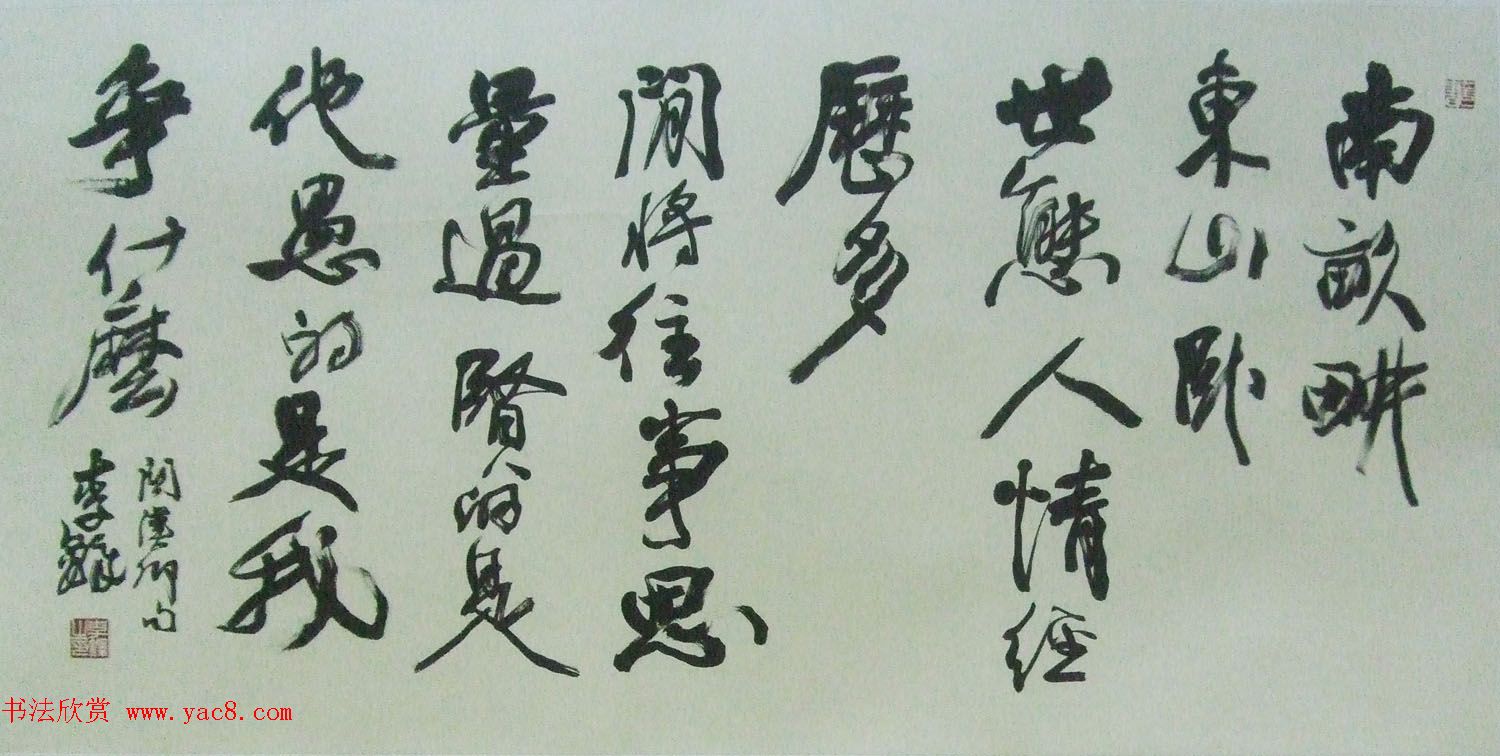 南畝畊
東山卧
世態人情經
歷多
閒將往事思
量過賢的是
他愚的是我
爭什麽
關漢卿句
李
书法欣赏 www.yac8.com